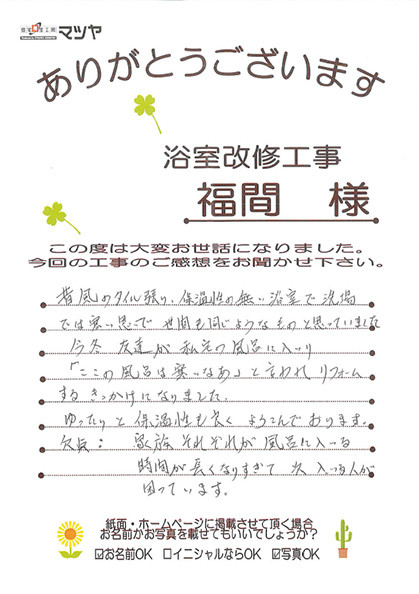 マツヤ
ありがとうございます
浴室改修工事
福間 様
この度は大変お世話になりました。
今回の工事のご感想をお聞かせ下さい。
昔風のタイル張り、保温性の無い浴室で洗場
では寒い思いで世間も同じようなものと思っていました
今冬 友達が 私宅の風呂に入り
「ここの風呂は寒いなあ」と言われ リフォーム
するきっかけになりました。
ゆったりと 保温性も良く よろこんでおります。
欠点: 家族それぞれが 風呂に入る
時間が長くなりすぎて 次 入る人が
困っています。
紙面・ホームページに掲載させて頂く場合
お名前かお写真を載せてもいいでしょうか?
☑お名前OK □イニシャルならOK ☑写真OK